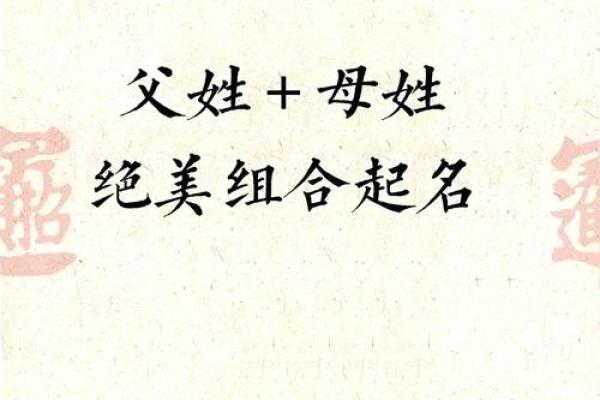 父姓+母姓
绝美组合起名